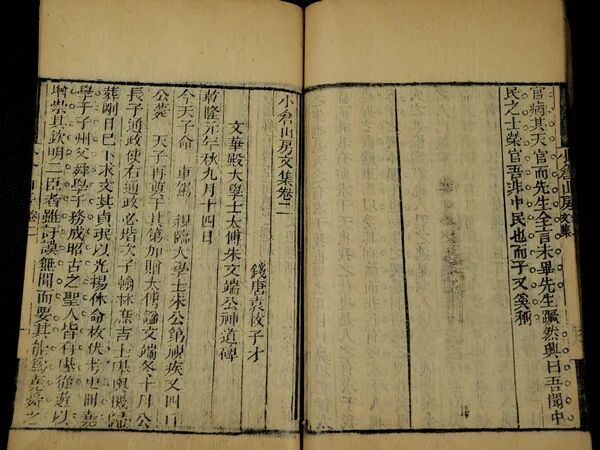 小倉山房文集
官病其天官而先生全言未畢先生蹶然興曰吾聞中
民之士榮官吾非中民也而子又奚稱
小倉山房文集卷二
錢唐袁枚子才
文華殿大學士太傅朱文端公神道碑
乾隆元年秋九月十四日
今天子命 車駕 親臨大學士朱公第視疾又四日
公薨 天子再奠于其第加贈太傅諡文端冬十月公
長子通政使右通政必堦次子翰林庶吉士基輿機歸
葬剛日已卜求文其貞珉以光揚休命枚伏考史冊堯
學于子州父舜學于務成昭古之聖人皆有基從遊以
增崇其欽明二臣者雖訏謨無聞而要其能爲堯舜之